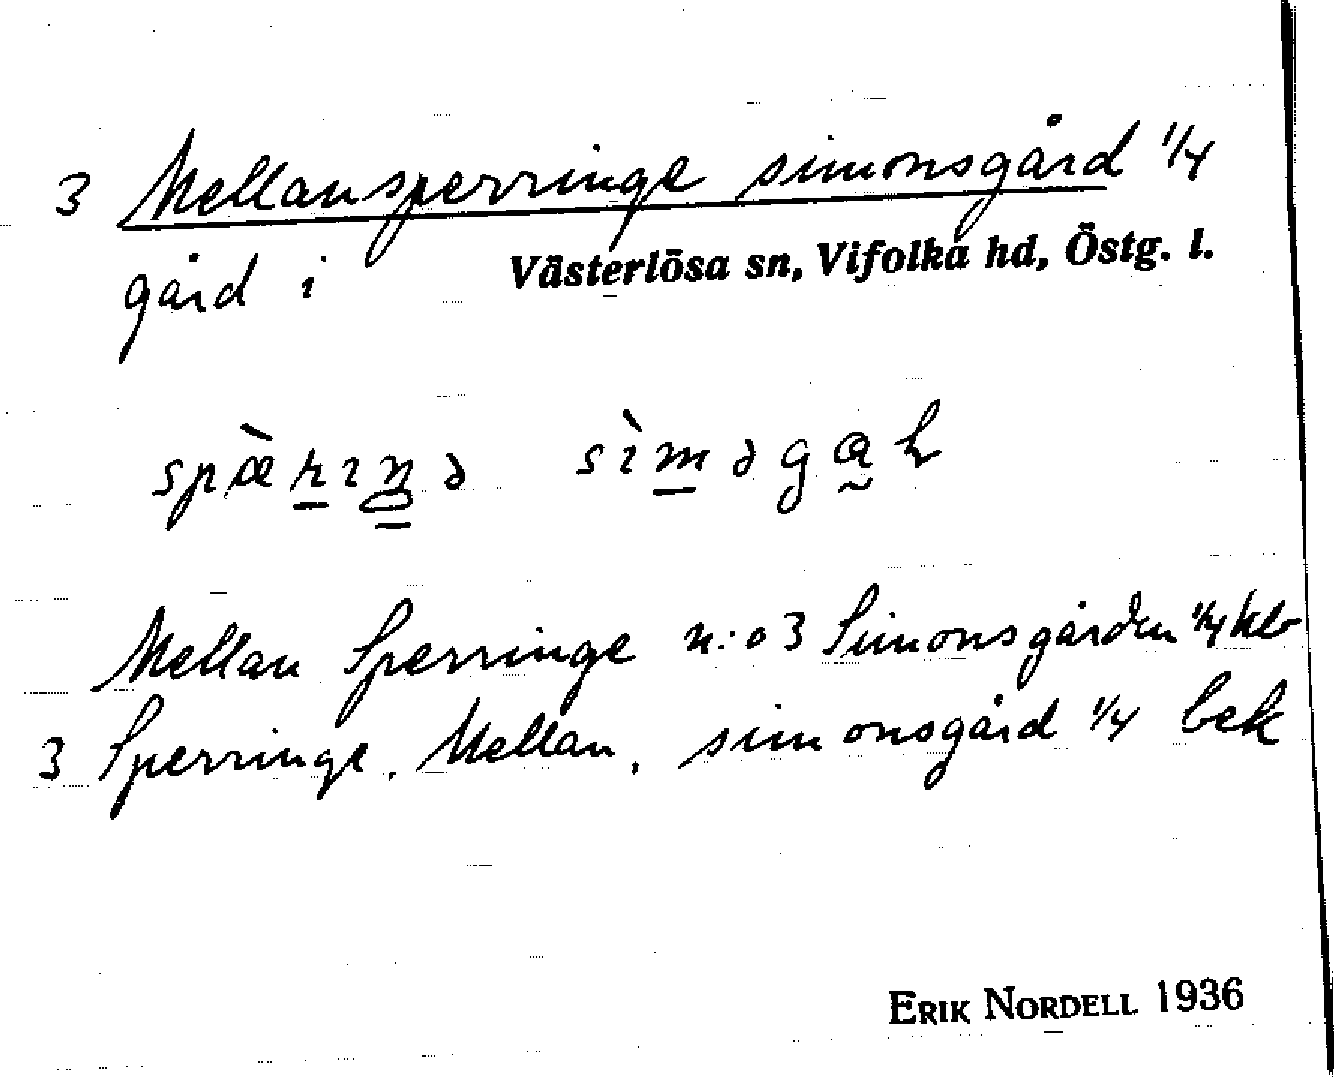 3 Mellansperringe simonsgård 1/4
gård i Västerlösa sn, Vifolka hd, Östg. l.
Mellan Sperringe n:o 3 Simonsgården 1/4 klb
3 Sperringe, Mellan, simonsgård 1/4 bek
ERIK NORDELL 1936